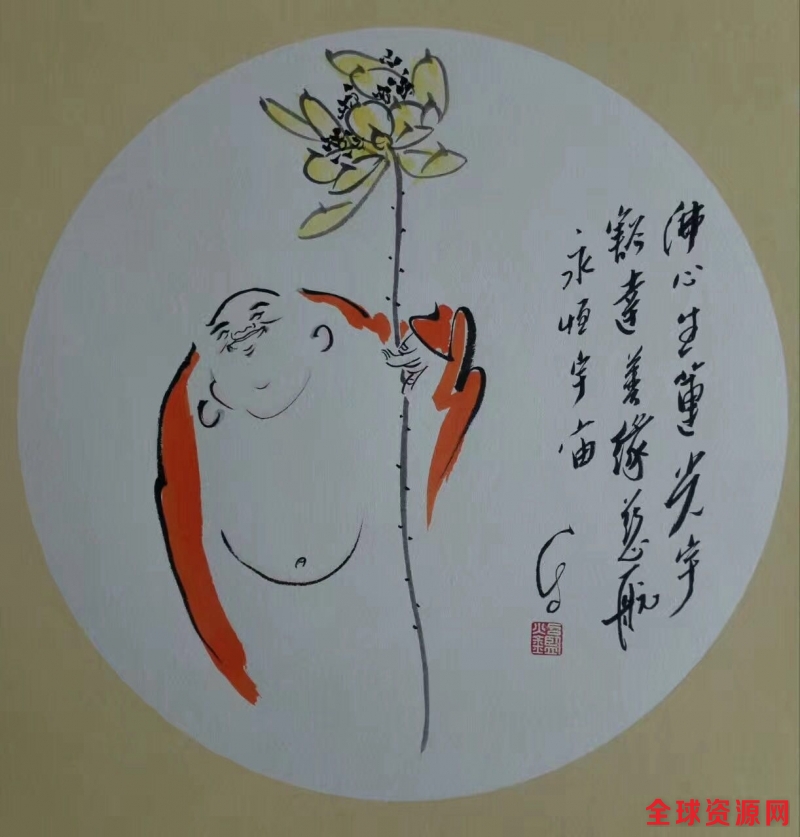 佛心生蓮光宇
豁達善缘慈航
永恒宇宙
全球资源网